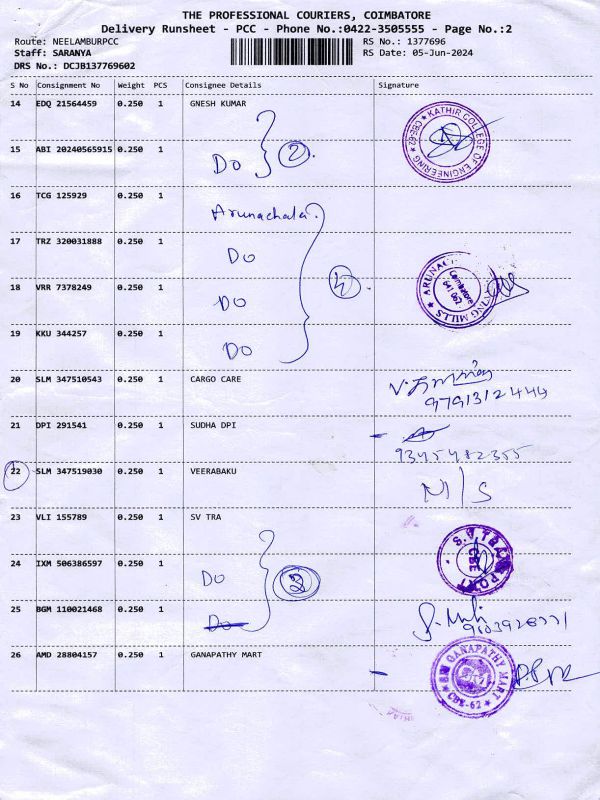 THE PROFESSIONAL COURIERS, COIMBATORE
Delivery Runsheet - PCC - Phone No.:0422-3505555 - Page No.:2
Route: NEELAMBURPCC RS No.: 1377696
Staff: SARANYA RS Date: 05-Jun-2024
DRS No.: DCJB137769602
S No Consignment No Weight PCS Consignee Details Signature
14 EDQ 21564459 0.250 1 GNESH KUMAR
KATHIR COLLEGE OF ENGINEERING * CBE-62 *
15 ABI 20240565915 0.250 1 Do 2
16 TCG 125929 0.250 1 Arunachala
17 TRZ 320031888 0.250 1 Do
18 VRR 7378249 0.250 1 Do 4
Coimbatore 641 062 MILLS
19 KKU 344257 0.250 1 Do
20 SLM 347510543 0.250 1 CARGO CARE
9791312444
21 DPI 291541 0.250 1 SUDHA DPI
9345482355
22 SLM 347519030 0.250 1 VEERABAKU N/S
23 VLI 155789 0.250 1 SV TRA
S.V TRANSPORT CBE
24 IXM 506386597 0.250 1 Do
25 BGM 110021468 0.250 1 Do
26 AMD 28804157 0.250 1 GANAPATHY MART
SRI GANAPATHY MART * CBE-62 *